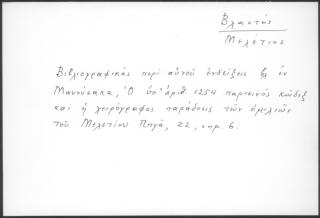 Βλαστός
Μελέτιος
Βιβλιογραφικάς περί αὐτοῦ ἐνδείξεις βλ. ἐν
Μανούσακα, Ὁ ὑπ' ἀριθ. 1254 παρισινός κώδιξ
καί ἡ χειρόγραφος παράδοσις τῶν ὁμιλιῶν
τοῦ Μελετίου Πηγᾶ, 22, σημ. 6.